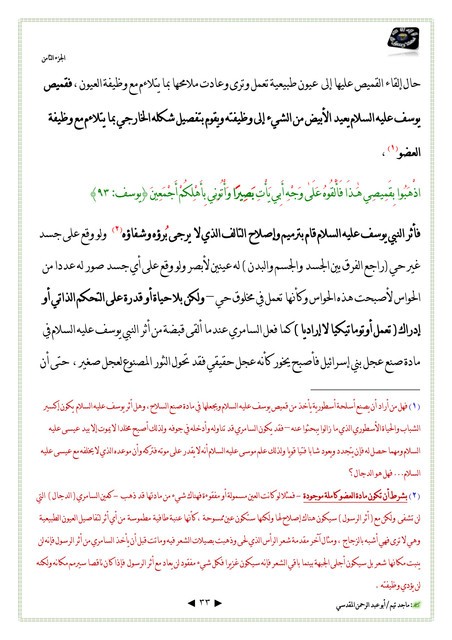 الجزء الثامن
حال إلقاء القميص عليها إلى عيون طبيعية تعمل وترى وعادت ملامحها بما يتلاءم مع وظيفة العيون ، فقميص
يوسف عليه السلام يعيد الأبيض من الشيء إلى وظيفته ويقوم بتفصيل شكله الخارجي بما يتلاءم مع وظيفة
العضو(١) ،
اذْهَبُوا بِقَمِيصِي هَٰذَا فَأَلْقُوهُ عَلَىٰ وَجْهِ أَبِي يَأْتِ بَصِيرًا وَأْتُونِي بِأَهْلِكُمْ أَجْمَعِينَ ﴿يوسف: ٩٣﴾
فأثر النبي يوسف عليه السلام قام بترميم وإصلاح التالف الذي لا يرجى بُرؤه وشفاؤه(٢) ولو وقع على جسد
غير حي (راجع الفرق بين الجسد والجسم والبدن ) له عينين لأبصر ولو وقع على أي جسد صور له عددا من
الحواس لأصبحت هذه الحواس وكأنها تعمل في مخلوق حي – ولكن بلا حياة أو قدرة على التحكم الذاتي أو
إدراك ( تعمل أوتوماتيكيا لا إراديا ) كما فعل السامري عندما ألقى قبضة من أثر النبي يوسف عليه السلام في
مادة صنع عجل بني إسرائيل فأصبح يخور كأنه عجل حقيقي فقد تحول الثور المصنوع لعجل صغير ، حتى أن
(١) فهل من أراد أن يصنع أسلحة أسطورية يأخذ من قميص يوسف عليه السلام ويجعلها في مادة صنع السلاح ، وهل أثر يوسف عليه السلام يكون إكسير
الشباب والحياة الأسطوري الذي ما زالوا يبحثوا عنه – فقد يكون السامري قد تناوله وأدخله في جوفه ولذلك أصبح مخلدا لا يموت إلا بيد عيسى عليه
السلام ومهما حصل له فإن يتجدد ويعود شابا فتيا قويا ولذلك علم موسى عليه السلام أنه لا يقدر على موته فتركه وأن موعده الذي لا يخلفه مع عيسى عليه
السلام... فهل هو الدجال ؟
(٢) بشرط أن تكون مادة العضو كاملة موجودة – فمثلا لو كانت العين مسمولة أو مفقودة فهناك شيء من مادتها فقد ذهب – كعين السامري ( الدجال ) التي
لن تشفى ولكن مع ( أثر الرسول ) سيكون هناك إصلاح لها ولكنها ستكون عين ممسوحة ، كأنها عنبة طافية مطموسة من أي أثر لتفاصيل العيون الطبيعية
وهي لا ترى فهي أشبه بالزجاج ، ومثال آخر مقدمة شعر الرأس الذي لحى وذهبت بصيلات الشعر فيه وماتت قبل أن يأخذ السامري من أثر الرسول فإنه لن
ينبت مكانها شعر بل سيكون أجلى الجبهة بينما باقي الشعر فإنه سيكون غزيرا فكل شيء مفقود لن يعاد مع أثر الرسول فإذا كان ناقصا سيرمم مكانه ولكنه
لن يؤدي وظيفته .
٣٣
: ماجد تيم / أبو عبد الرحمن المقدسي